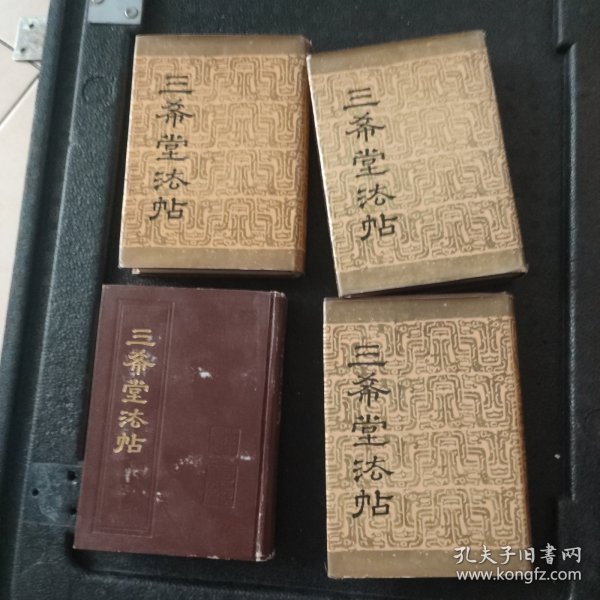 三希堂法帖
三希堂法帖
三希堂法帖
三希堂法帖
孔夫子旧书网
www.kongfz.com